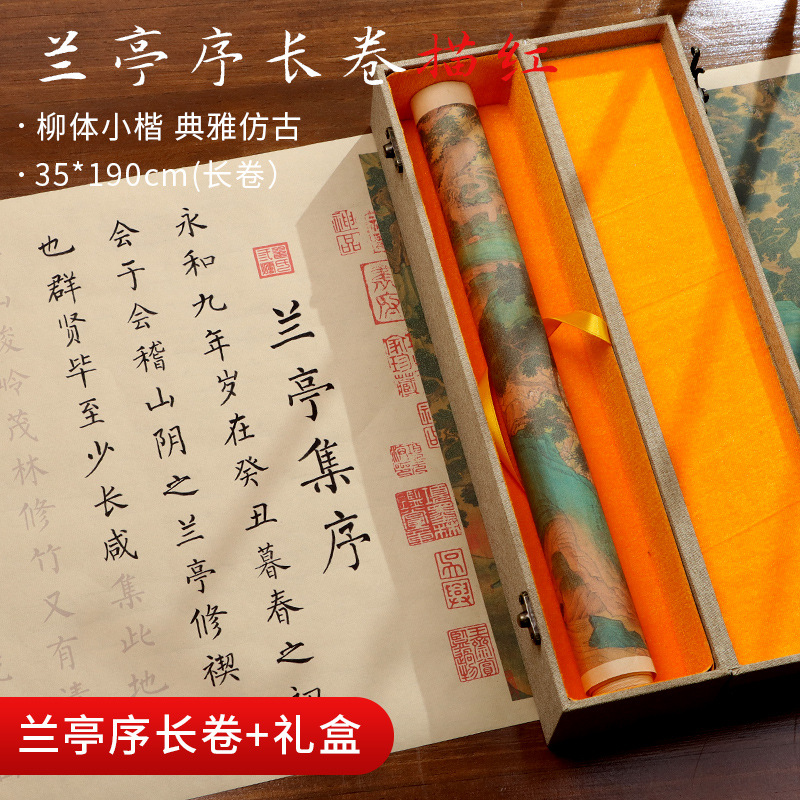 兰亭序长卷描红
· 柳体小楷 典雅仿古
· 35*190cm(长卷)
神品
兰亭集序
永和九年岁在癸丑暮春之初
会于会稽山阴之兰亭修禊
也群贤毕至少长咸集此地
山峻岭茂林修竹又有清
兰亭序长卷+礼盒